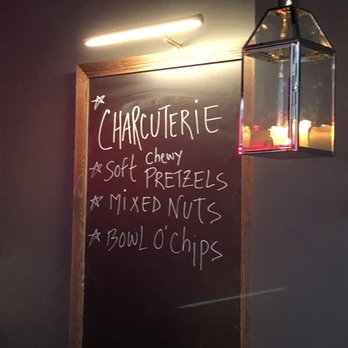 ☆ CHARCUTERIE
☆ Soft Chewy PRETZELS
☆ MIXED NUTS
☆ BOWL O'Chips